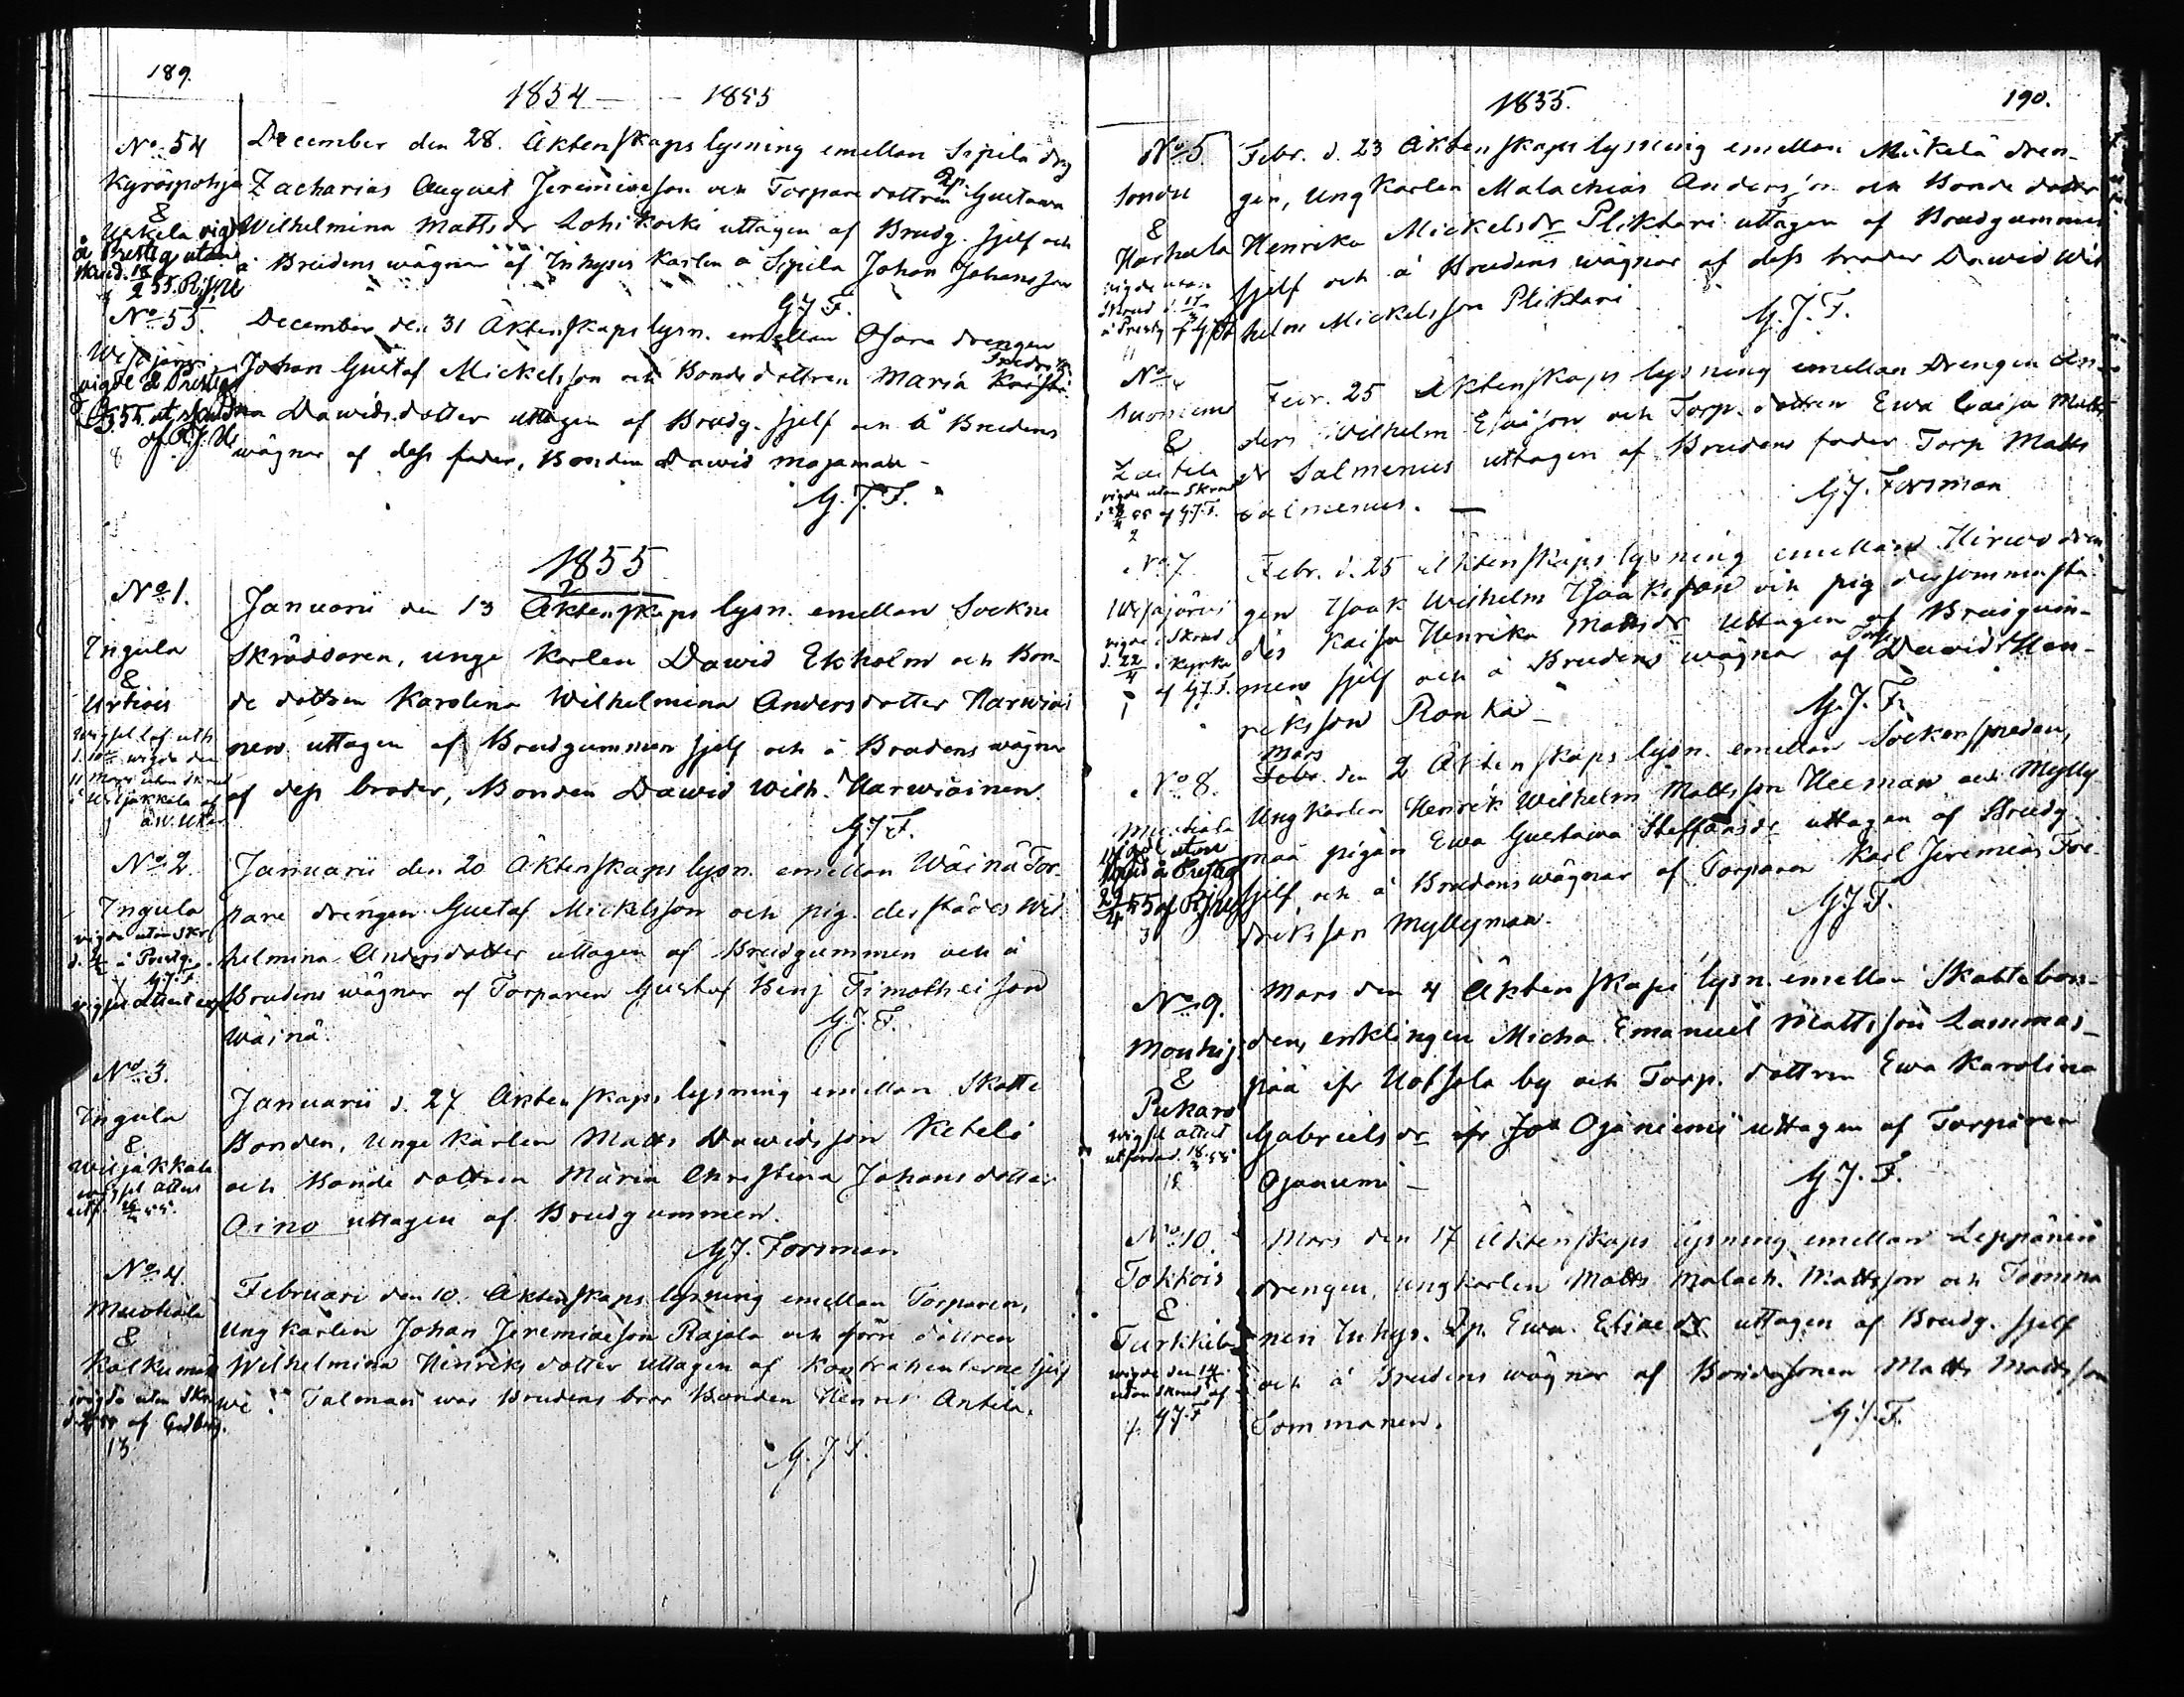 189.
1854 — 1855
No 54
Kyröspohja
&
Uskela vigde
å Prestg. utan
skrud. 18/2 55. RJU
December den 28. Äktenskaps lysning emellan Sipilä drg
Zacharias August Jeremiæson och Torpare dottren Qp. Gustawa
Wilhelmina Matts dr Lohikoski uttagen af Brudg. sjelf och
å Brudens wägnar af Inhyses Karlen å Sipilä Johan Johansson
G J F.
No 55.
Wesajärwi
vigde å Prestg.
55 utan skrud
af R.J.U
8
December den 31 Äktenskaps lysn. emellan Osara drengen
Johan Gustaf Mickelsson och Bonde dottren Maria Fredrika Kristi-
na Dawids dotter uttagen af Brudg. sjelf och å Brudens
wägnar af dess fader, Bonden Dawid Majamaa —
G. J. F.
1855
No 1.
Yngula
&
Urtiois
Januarii den 13 Äktenskaps lysn. emellan Sockne
Skräddaren, unge Karlen Dawid Ekholm och Bon-
de dottren Karolina Wilhelmina Anders dotter Harwiai
nen uttagen af Brudgummen sjelf och å Brudens wägnar
af dess broder, Bonden Dawid Wilh. Harwiainen.
G J F.
No 2.
Yngula
vigde utan Skr
å Prestg.
G.J.F.
Januarii den 20 Äktenskaps lysn. emellan Wäinä Tor-
pare drengen Gustaf Mickelsson och pig. derstädes Wil
helmina Andersdotter uttagen af Brudgummen och å
Brudens wägnar af Torparen Gustaf Benj Timotheison
Wäinä.
G. J. F.
No 3.
Yngula
&
Wiljakkala
wigsel attest
utf. 55.
Januarii d. 27 Äktenskaps lysning emellan Skatte
Bonden, unge karlen Matts Dawidsson Keteli
och Bonde dottren Maria Christina Johans dotter
Oino uttagen af Brudgummen.
G J. Forsman
No 4.
Muotiala
&
Kalkunmäki
wigde utan Skrud
af Godberg.
13
Februari den 10. Äktenskaps lysning emellan Torparen,
Ung karlen Johan Jeremiæson Rajala och förre dottren
Wilhelmina Henriks dotter uttagen af kontrahenterne sjelf
we. Talman war Brudens bror Bonden Henrik Antila.
G. J. F.
1855.
190.
No 5.
&
Harhala
vigde utan
skrud d. 17/3
å Prestg af GJF
11
Febr. d. 23 Äktenskaps lysning emellan Mikelä dren-
gen, Ungkarlen Malachias Andersson och Bonde dotter
Henrika Mickels dr Pliktari uttagen af Brudgummen
sjelf och å Brudens wägnar af dess broder Dawid Wil
helm Mickelsson Pliktari
G. J. F.
No
Suoniemi
&
vigde utan Skrud
af G.J.F.
2
Febr. 25 Äktenskaps lysning emellan Drengen An-
ders Wilhelm Esaison och Torp. dottren Ewa Caisa Matts
dr Salmenus uttagen af Brudens fader Torp Matts
Salmenus. —
G J. Forsman
No 7
Wesajärwi
vigde i Skrud
d. 22/4 i Kyrka
4 G J. F.
Febr. d. 25 Äktenskaps lysning emellan Hirwo dren
gen Isaak Wilhelm Isaksson och pig dersammastä
des Kaisa Henrika Matts dr uttagen af Brudgum-
men sjelf och å Brudens wägnar af Torp. Dawid Hen-
riksson Ronka —
G. J. F.
No 8.
Muotiala
vigde utan
skrud å Prestg
29/4 55 af RJU
3
Mars
Febr. den 2 Äktenskaps lysn. emellan Sockensmeden,
Ungkarlen Henrik Wilhelm Mattsson Heeman och Mylly
maa pigan Ewa Gustawa Staffans dr uttagen af Brudg
sjelf och å Brudens wägnar af Torparen Karl Jeremias Fre-
driksson Myllymaa.
G J F.
No 9.
Mouhij.
&
Pukaro
wigsel attest
utfärdad. 18/3 55
12
Mars den 4 Äktenskaps lysn. emellan Skattebon-
den, enklingen Micha Emanuel Mattsson Lammas-
pää ifr Uotsola by och Torp. dottren Ewa Karolina
Gabriels dr ifr Jo Ojaniemi uttagen af Torparen
Ojaniemi —
G. J. F.
No 10.
Tokkois
&
Turkkila
wigde den 14
utan skrud af
G J. F
Mars den 17 Äktenskaps lysning emellan Leppänen
drengen, ungkarlen Matts Malach. Mattsson och Tomma
nen Inhys. Qp. Ewa Eliæ dr uttagen af Brudg. sjelf
och å Brudens wägnar af Bondesonen Matts Mattsson
Sommanen.
G. J. F.